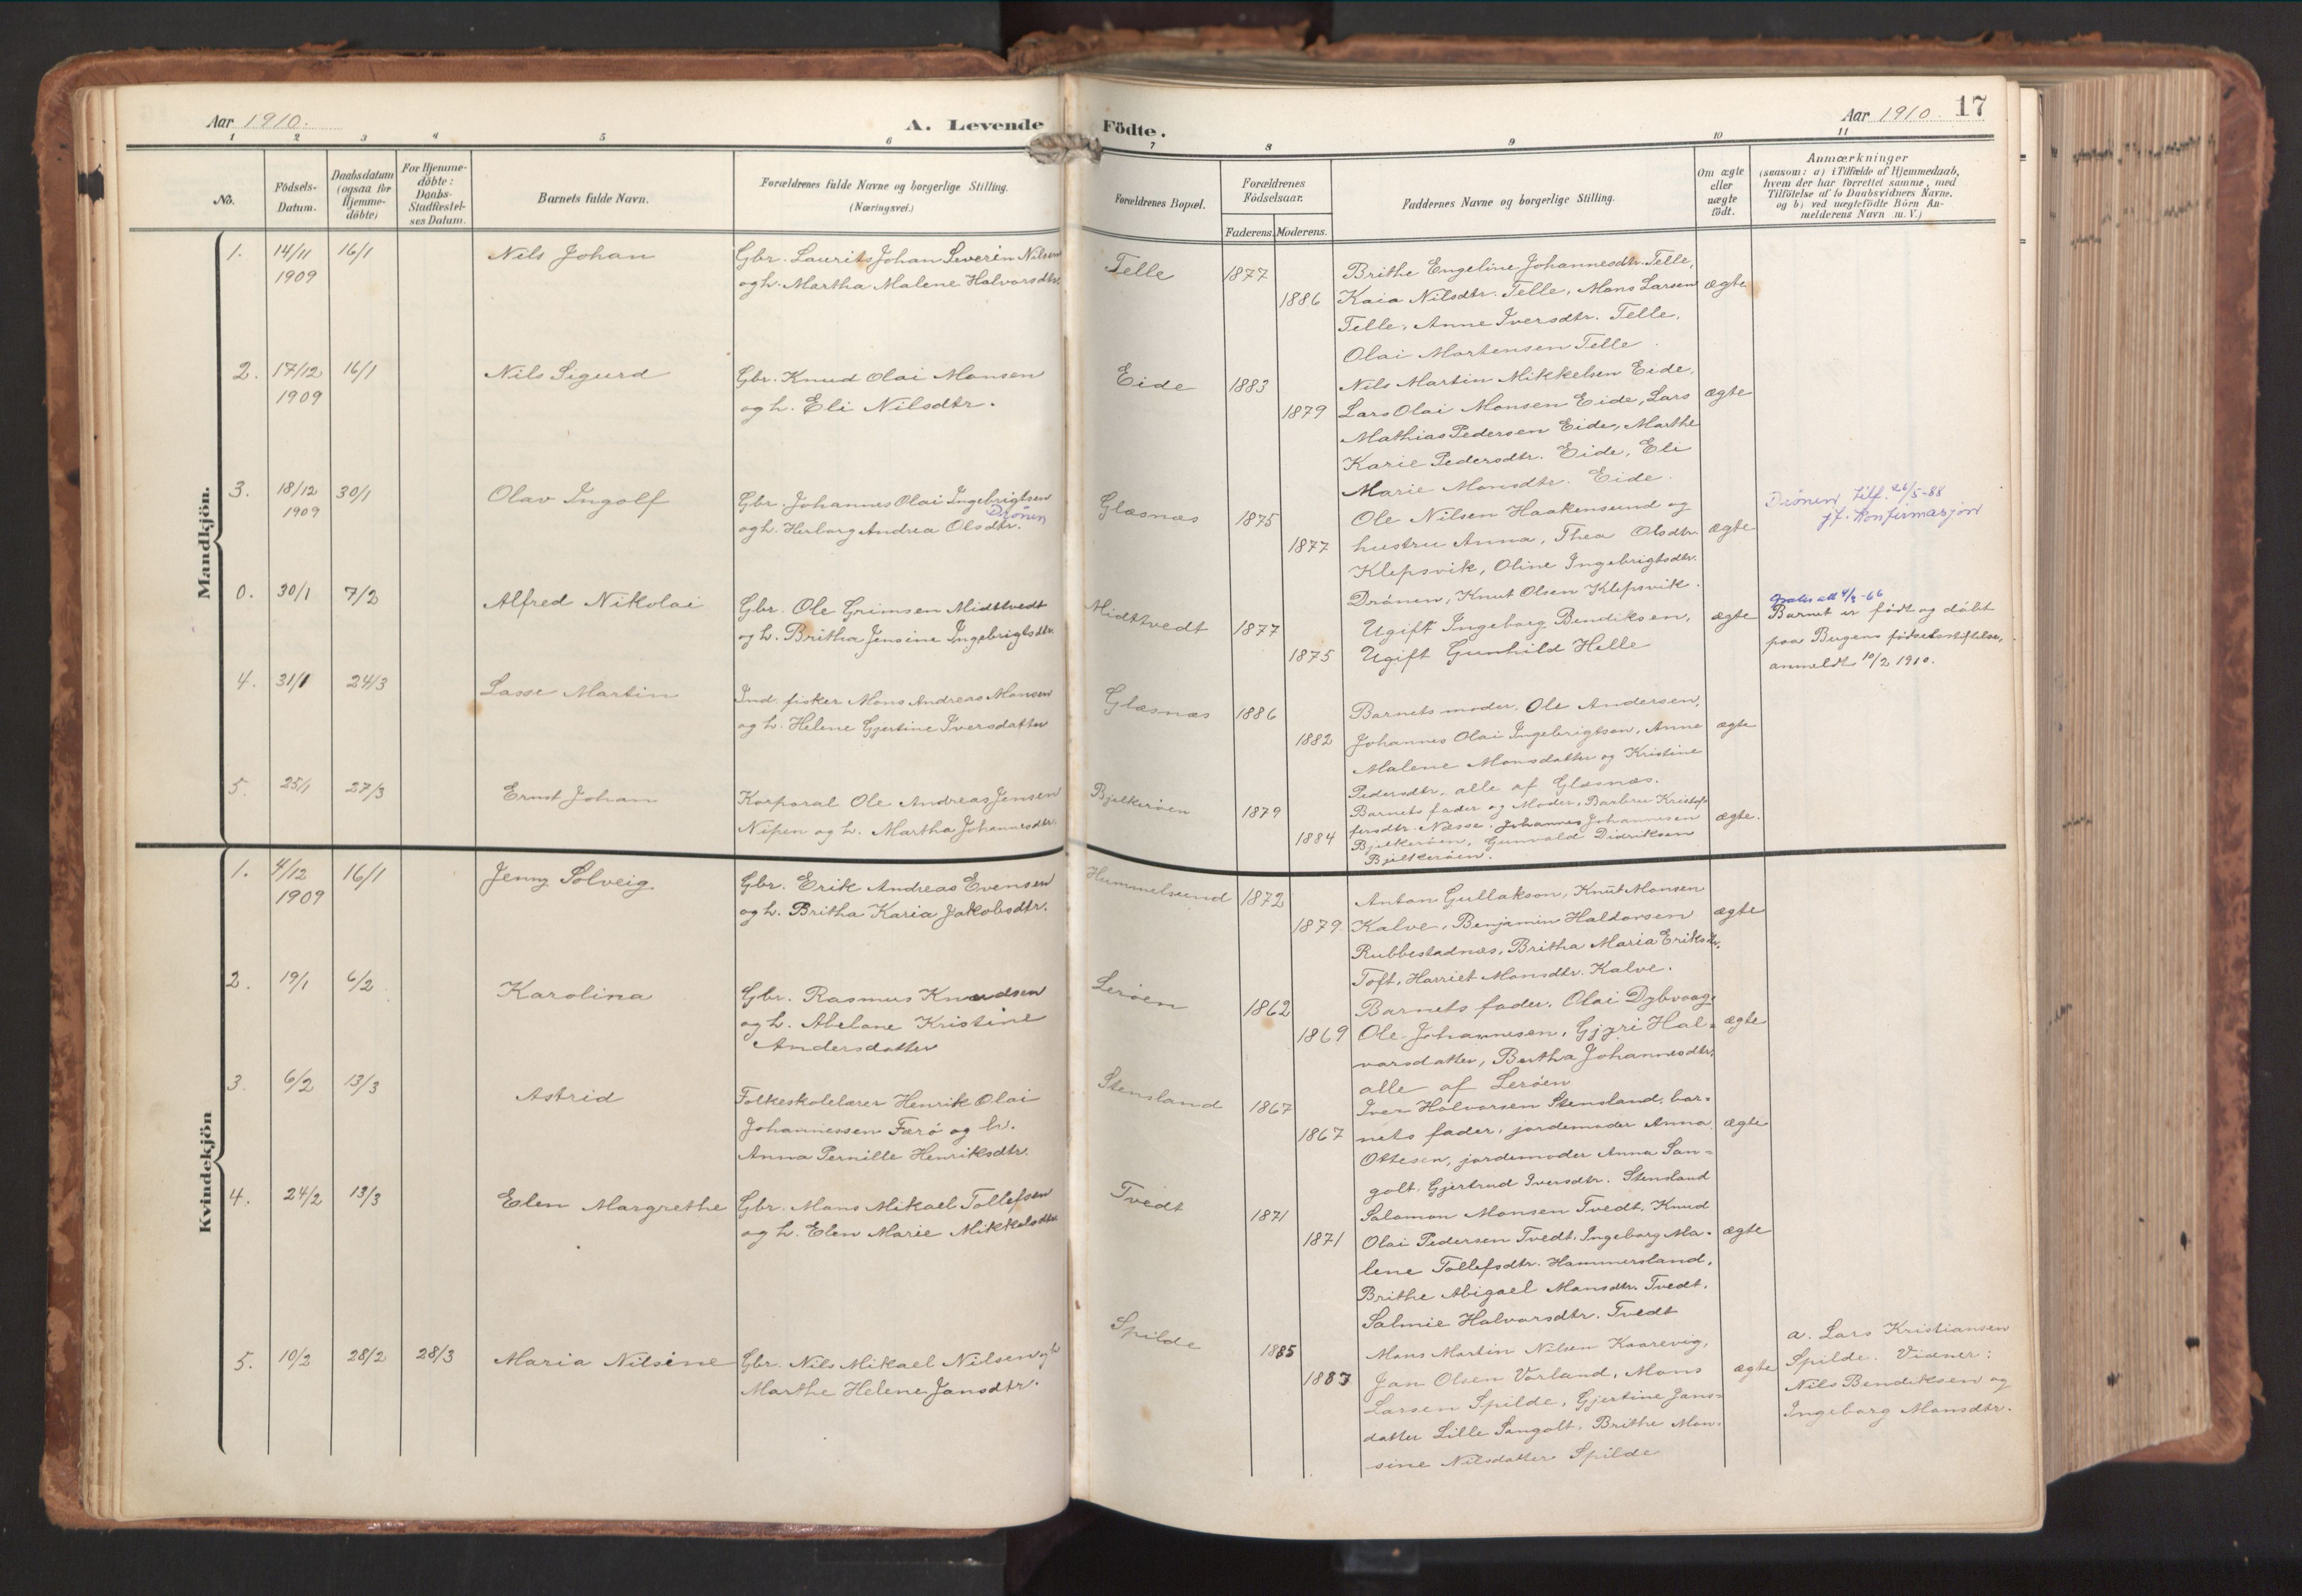 Aar 1910. A. Levende Födte. Aar 1910 17
1 2 3 4 5 6 7 8 9 10 11
No. Födsels-Datum. Daabsdatum (ogsaa for Hjemme-döbte) For Hjemme-döbte: Daabs-Stadfæstel-ses Datum. Barnets fulde Navn. Forældrenes fulde Navne og borgerlige Stilling. (Næringsvei.) Forældrenes Bopæl. Forældrenes Födselsaar. Faderens. Moderens. Faddernes Navne og borgerlige Stilling. Om ægte eller uægte födt. Anmærkninger (saasom: a) i Tilfælde af Hjemmedaab, hvem der har forrettet samme, med Tilföielse af to Daabsvidners Navne. og b) ved uægtefödte Börn An-melderens Navn m. V.)
Mandkjön.
1. 14/11 1909 16/1 Nils Johan
Gbr. Laurits Johan Severin Nilsen
og h. Martha Malene Halvorsdtr.
Telle 1877 1886
Brithe Engeline Johannesdtr. Telle,
Kaia Nilsdtr. Telle, Mons Larsen
Telle, Anne Iversdtr. Telle,
Olai Mortensen Telle.
ægte
2. 17/12 1909 16/1 Nils Sigurd
Gbr. Knud Olai Monsen
og h. Eli Nilsdtr.
Eide 1883 1879
Nils Martin Mikkelsen Eide,
Lars Olai Monsen Eide, Lars
Mathias Pedersen Eide, Marthe
Karie Pedersdtr. Eide, Eli
Marie Monsdtr. Eide.
ægte
3. 18/12 1909 30/1 Olav Ingolf
Gbr. Johannes Olai Ingebrigtsen
Drönen
og h. Herborg Andrea Olsdtr.
Glæsnæs 1875 1877
Ole Nilsen Haakensund og
hustru Anna, Thea Olsdtr.
Klepsvik, Oline Ingebrigtsdtr.
Drönen, Knut Olsen Klepsvik.
ægte
Drönen tilf. 26/5-88
jf. Konfirmasjon
0. 30/1 7/2 Alfred Nikolai
Gbr. Ole Grimsen Midttvedt
og h. Britha Jensine Ingebrigtsdtr.
Midttvedt 1877 1875
Ugift Ingeborg Bendiksen,
Ugift Gunhild Helle
ægte
Barnet er födt og döbt
paa Bergens födselsstiftelse,
anmeldt 10/2 1910.
4. 31/1 24/3 Lasse Martin
Ind. fisker Mons Andreas Monsen
og h. Helene Gjertine Iversdatter
Glæsnæs 1886 1882
Barnets moder, Ole Andersen,
Johannes Olai Ingebrigtsen, Anne
Malene Monsdatter og Kristine
Pedersdtr, alle af Glæsnæs.
ægte
5. 25/1 27/3 Ernst Johan
Korporal Ole Andreas Jensen
Nipen og h. Martha Johannesdtr.
Bjelkeröen 1879 1884
Barnets fader og Moder, Barbru Kristof-
fersdtr. Næsse, Johannes Johannesen
Bjelkeröen, Gunvald Didriksen
Bjelkeröen.
ægte.
Kvindekjön
1. 4/12 1909 16/1 Jenny Solveig
Gbr. Erik Andreas Evensen
og h. Britha Karia Jakobsdtr.
Hummelsund 1872 1879
Anton Gullakson, Knut Monsen
Kalve, Benjamin Haldorsen
Rubbestadnæs, Britha Maria Eriksdtr.
Toft, Harriet Monsdtr. Kalve.
ægte
2. 19/1 6/2 Karolina
Gbr. Rasmus Knudsen
og h. Abelone Kristine
Andersdatter
Leröen 1862 1869
Barnets fader, Olai Dybvaag,
Ole Johannesen, Gjyri Hal-
varsdatter, Bertha Johannesdtr,
alle af Leröen
ægte
3. 6/2 13/3 Astrid
Folkeskolelærer Henrik Olai
Johannessen Færö og h.
Anna Pernille Henriksdtr.
Stensland 1867 1867
Iver Halvorsen Stensland, bar-
nets fader, jordemoder Anna
Ottesen, jordemoder Anna San-
golt, Gjertrud Iversdtr. Stensland
ægte
4. 24/2 13/3 Elen Margrethe
Gbr. Mons Mikael Tollefsen
og h. Elen Marie Mikkelsdtr
Tvedt 1871 1871
Salomon Monsen Tvedt, Knud
Olai Pedersen Tvedt, Ingeborg Ma-
lene Tollefsdtr. Hammersland,
Brithe Abigael Monsdtr. Tvedt.
Salmie Halvorsdtr. Tvedt
ægte
5. 10/2 28/2 28/3 Maria Nilsine
Gbr. Nils Mikael Nilsen og h
Marthe Helene Jansdtr.
Spilde 1885 1883
Mons Martin Nilsen Kaarevig,
Jan Olsen Vorland, Mons
Larsen Spilde, Gjertine Jans-
datter Lille Sangolt, Brithe Mon-
sine Nilsdatter Spilde
ægte
a. Lars Kristiansen
Spilde. Vidner:
Nils Bendiksen og
Ingeborg Monsdtr.